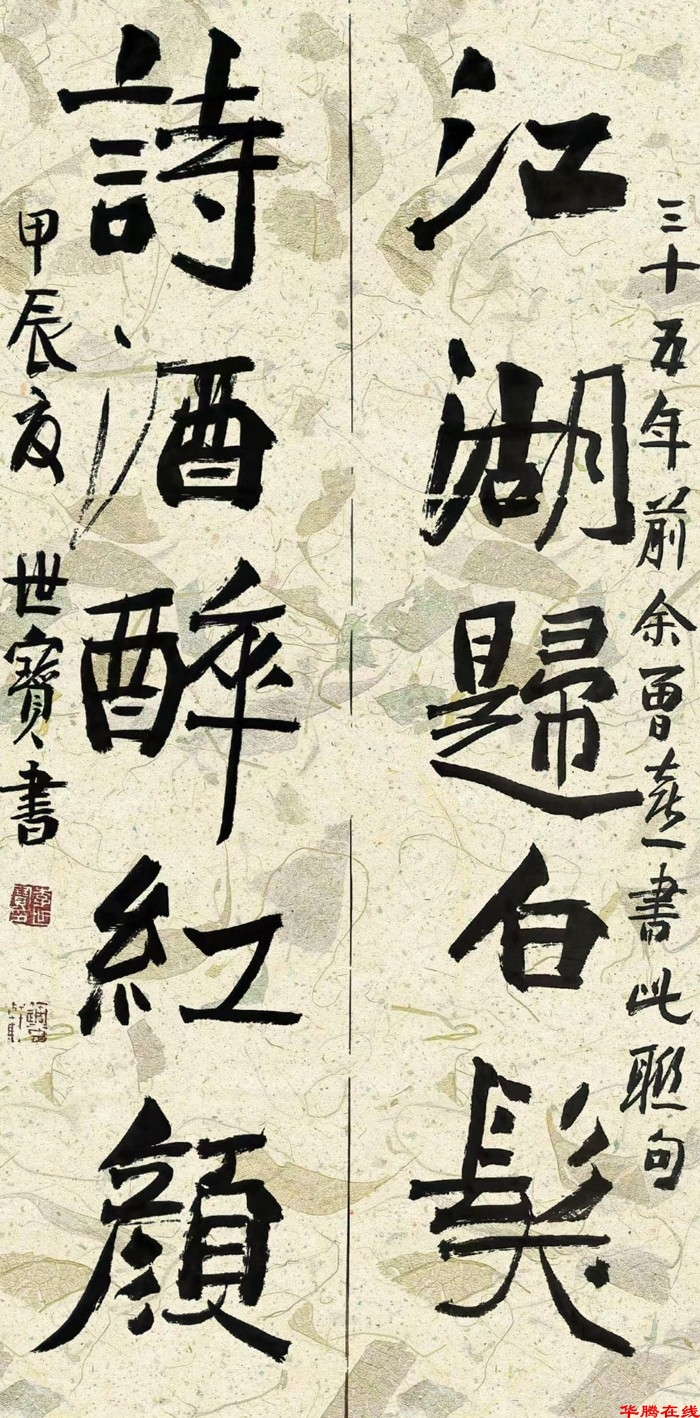 三十五年前余曾喜書此聯句
江湖歸白髮
詩酒醉紅顏
甲辰夏世寶書
李世寶印
华腾在线